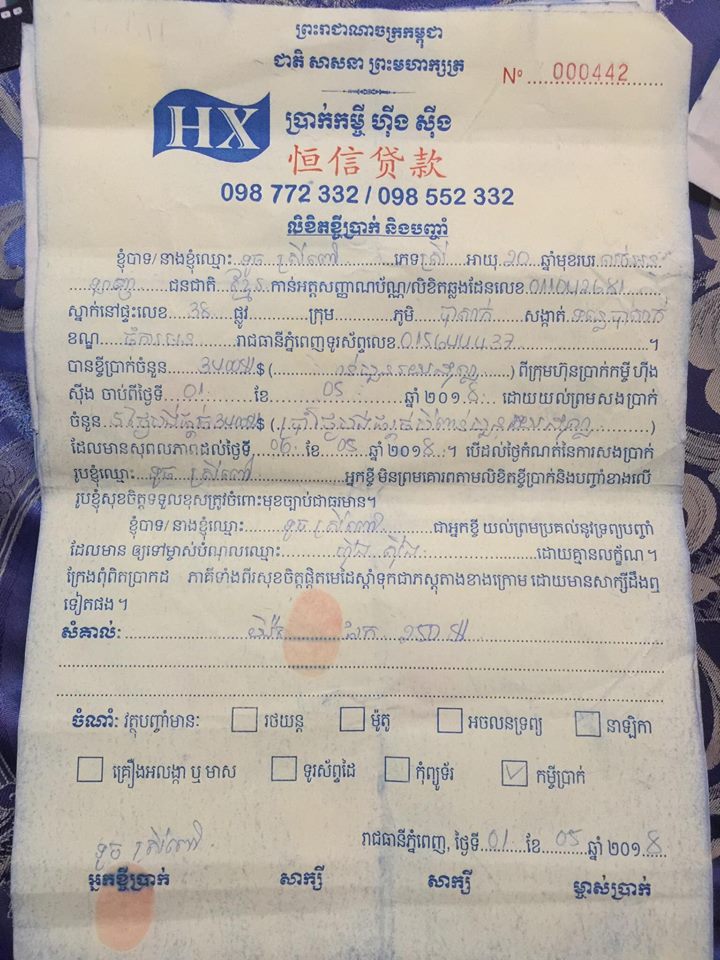 ព្រះរាជាណាចក្រកម្ពុជា
ជាតិ សាសនា ព្រះមហាក្សត្រ
Nº 000442
HX
ប្រាក់កម្ចី ហ៊ីង ស៊ីង
恒信贷款
098 772 332 / 098 552 332
លិខិតខ្ចីប្រាក់ និងបញ្ចាំ
ខ្ញុំបាទ/ នាងខ្ញុំឈ្មោះ ទូច ស្រីពៅ ភេទ ស្រី អាយុ ២០ ឆ្នាំមុខរបរ
ជនជាតិ ខ្មែរ កាន់អត្តសញ្ញាណប័ណ្ណ/លិខិតឆ្លងដែនលេខ
ស្នាក់នៅផ្ទះលេខ ផ្លូវ ក្រុម ភូមិ សង្កាត់
ខណ្ឌ ចំការមន រាជធានីភ្នំពេញទូរស័ព្ទលេខ ។
បានខ្ចីប្រាក់ចំនួន $ ( ) ពីក្រុមហ៊ុនប្រាក់កម្ចី ហ៊ីង
ស៊ីង ចាប់ពីថ្ងៃទី 01 ខែ 05 ឆ្នាំ ២០១៨ ដោយយល់ព្រមសងប្រាក់
ចំនួន $ ( )
ដែលមានសុពលភាពដល់ថ្ងៃទី ខែ 05 ឆ្នាំ ២០១៨ ។ បើដល់ថ្ងៃកំណត់នៃការសងប្រាក់
រូបខ្ញុំឈ្មោះ ទូច ស្រីពៅ អ្នកខ្ចី មិនព្រមគោរពតាមលិខិតខ្ចីប្រាក់និងបញ្ចាំខាងលើ
រូបខ្ញុំសុខចិត្តទទួលខុសត្រូវចំពោះមុខច្បាប់ជាធរមាន។
ខ្ញុំបាទ/ នាងខ្ញុំឈ្មោះ ទូច ស្រីពៅ ជាអ្នកខ្ចី យល់ព្រមប្រគល់នូវទ្រព្យបញ្ចាំ
ដែលមាន ឲ្យទៅម្ចាស់បំណុលឈ្មោះ ហ៊ីង ស៊ីង ដោយគ្មានលក្ខ័ណ។
ក្រែងពុំពិតប្រាកដ ភាគីទាំងពីរសុខចិត្តផ្តិតមេដៃស្តាំទុកជាភស្តុតាងខាងក្រោម ដោយមានសាក្សីដឹងឮ
ទៀតផង ។
សំគាល់:
ចំណាំ: វត្ថុបញ្ចាំមាន: រថយន្ត ម៉ូតូ អចលនទ្រព្យ នាឡិកា
គ្រឿងអលង្កា ឬ មាស ទូរស័ព្ទដៃ កុំព្យូទ័រ កម្ចីប្រាក់
រាជធានីភ្នំពេញ, ថ្ងៃទី 01 ខែ 05 ឆ្នាំ ២០១៨
ទូច ស្រីពៅ
អ្នកខ្ចីប្រាក់ សាក្សី សាក្សី ម្ចាស់ប្រាក់